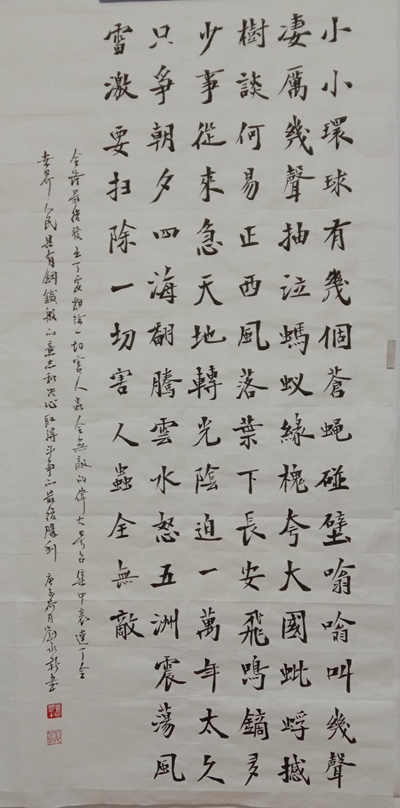 小小環球有幾個蒼蝇碰壁嗡嗡叫幾聲
凄厲幾聲抽泣螞蚁緣槐夸大國蚍蜉撼
樹談何易正西風落葉下長安飛鳴鏑多
少事從來急天地轉光陰迫一萬年太久
只爭朝夕四海翻騰雲水怒五洲震蕩風
雷激要扫除一切害人蟲全無敵
全詩最後發出了要掃除一切害人蟲全無敵的偉大号召集中表達了全
世界人民具有鋼鐵般的意志和決心取得斗争的最後勝利